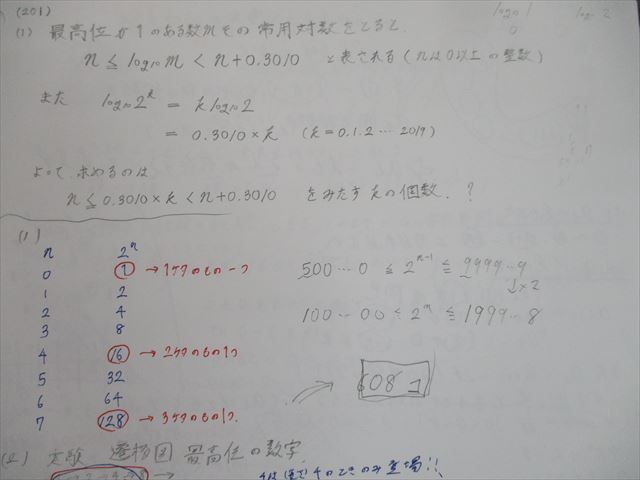 (201)
(1) 最高位が1のある数mその常用対数をとると.
n ≦ log₁₀m < n+0.3010 と表される (nは0以上の整数)
また log₁₀2^k = k log₁₀2
= 0.3010×k (k=0.1.2…2019)
よって 求めるのは
n ≦ 0.3010×k < n+0.3010 をみたすkの個数. ?
(1)
n 2^n
0 1 → 1ケタのもの一つ
1 2
2 4
3 8
4 16 → 2ケタのもの1つ
5 32
6 64
7 128 → 3ケタのもの1つ.
500…0 ≦ 2^{n-1} ≦ 9999…9
↓×2
100…00 ≦ 2^n ≦ 1999…8
608コ
(2) 実験 遷移図 最高位の数字